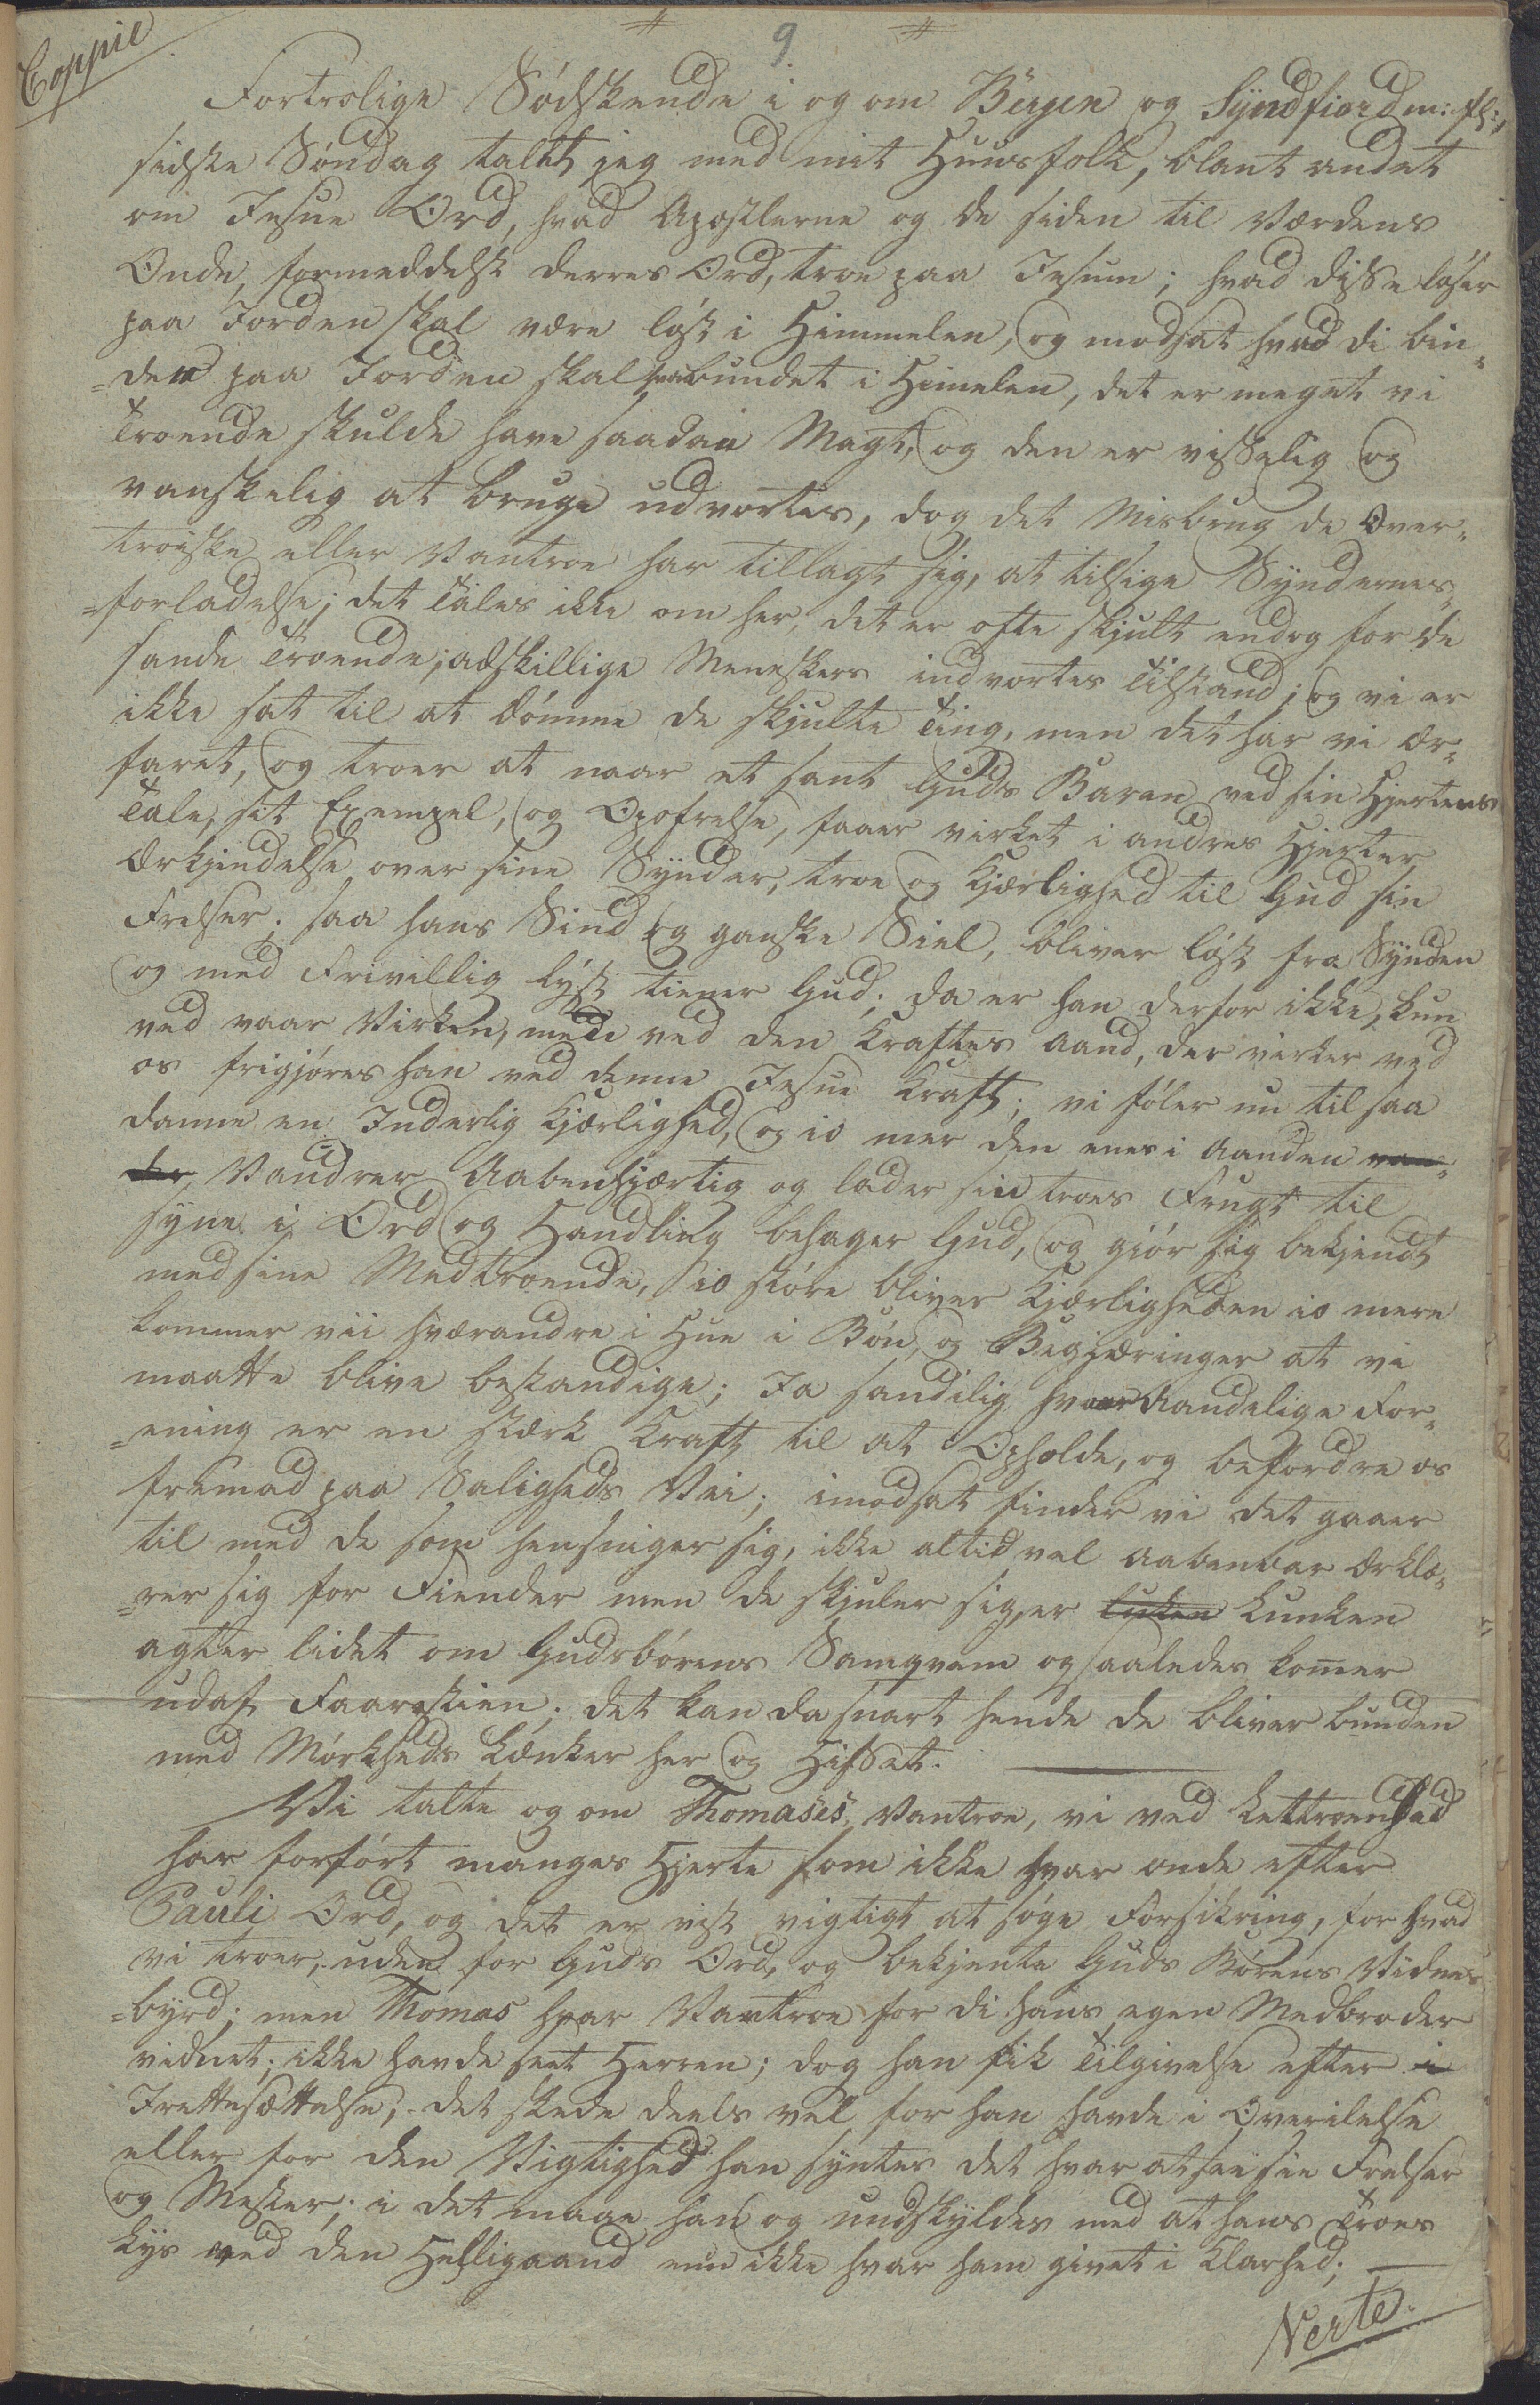 Coppie
9
Fortrolige Sødskende i og om Bergen og Syndfiord m: fl:,
sidste Søndag talte jeg med mit Huusfolk, blant andet
om Jesue Ord, hvad Apostlerne og de siden til Verdens
Ende, formeddelst derres Ord, troe paa Jesum; hvad disse løser
paa Jorden skal være løst i Himmelen, og modsat hvad di bin-
=der paa Jorden skal være bundet i Himelen, det er meget vi
Troende skulde have saadan Magt, og den er visselig og
vanskelig at bruge udvortes, dog det Misbrug de Over-
troiske eller Vantroe har tillagt sig, at tilsige Syndernes
=forladelse; det Tales ikke om her, det er ofte skjult endog for de
sande Troende; adskillige Meneskers indvortes Tilstand; og vi er
ikke sat til at dømme de skjulte Ting, men det har vi Er-
faret, og troer at naar et sant Guds Baren ved sin Hjertens
Tale, sit Exempel, og Opofrelse, faaer virket i andres Hjerter
Erkjendelse over sine Synder, troe og Kjærlighed til Gud sin
Frelser; saa hans Sind og ganske Siel, bliver løst fra Synden
og med Frivillig Lyst tiener Gud; da er han derfor ikke, kun
ved vaar Virken, mede ved den Kraftes Aand, der virker ved
os frigjøres han ved denne Jesue Kraft; vi føler nu til saa
danne en Inderlig Kjærlighed, og io mer den enes i Aanden van-
der, Vandrer Aabenhjærtig og lader sin troes Frugt til
syne i Ord og Handling behager Gud, og giør sig bekjendt
med sine Medtroende, io støre bliver Kjærligheden io mere
kommer vii hværandre i Hue i Bøn, og Begjæringer at vi
maatte blive bestandige; Ja sandelig hvaar Aandelige For-
=ening er en stærk Kraft til at Opholde, og befordre os
fremad paa Saligheds Vei; imodsat finder vi det gaaer
til med de som hensniger sig, ikke altid vel aabenbar Erklæ-
=rer sig for Fiender men de skjuler sig, er lunken
agter lidet om Gudsbørens Samqvem og saaledes komer
udaf Faarestien; det kan da snart hende de bliver bunden
med Mørkheds Lænker her og Hisset.
Vi talte og om Thomases, Vantroe, vi ved Lettroenhed
har forført manges Hjerte som ikke hvar onde efter
Pauli Ord, og det er vist vigtigt at søge Forsikring, for hvad
vi troer, uden for Guds Ord, og bekjente Guds Børens Vidnes
=byrd; men Thomas hvar Vantroe for di hans egen Medbroder
vidnet; ikke havde seet Herren; dog han fik Tilgivelse efter i
Irettesættelse, det skede deels vel for han havde i Overilelse
eller for den Vigtighed han syntes det hvar at see sin Frelser
og Mester; i det maae han og undskyldes med at hans Troes
Lys ved den Helligaand enn ikke hvar ham givet i Klarhed;
Verte